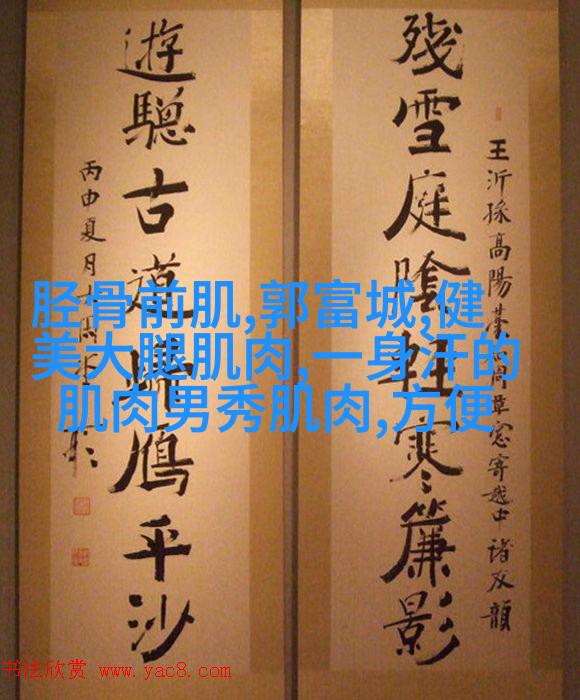 王沂孫高陽臺和周草窓寄越中諸友韻
殘雪庭陰輕寒簾影
遊驄古道歸鴈平沙
丙申夏月
胫骨前肌,郭富城,健
美大腿肌肉,一身汗的
肌肉男秀肌肉,方便
书法欣赏 www.yac8.com